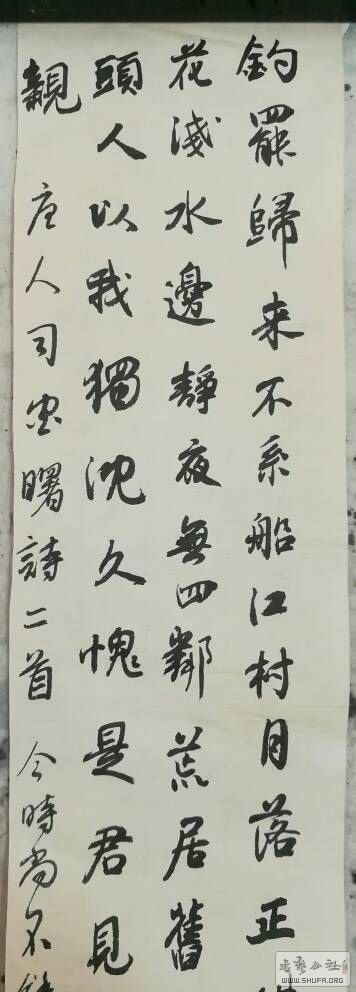 釣罷歸来不系船江村月落正
花淺水邊靜夜無四鄰荒居舊
頭人以我獨沈久愧是君見
親 唐人司空曙詩二首 今時尚不
书艺公社
WWW.SHUFA.ORG